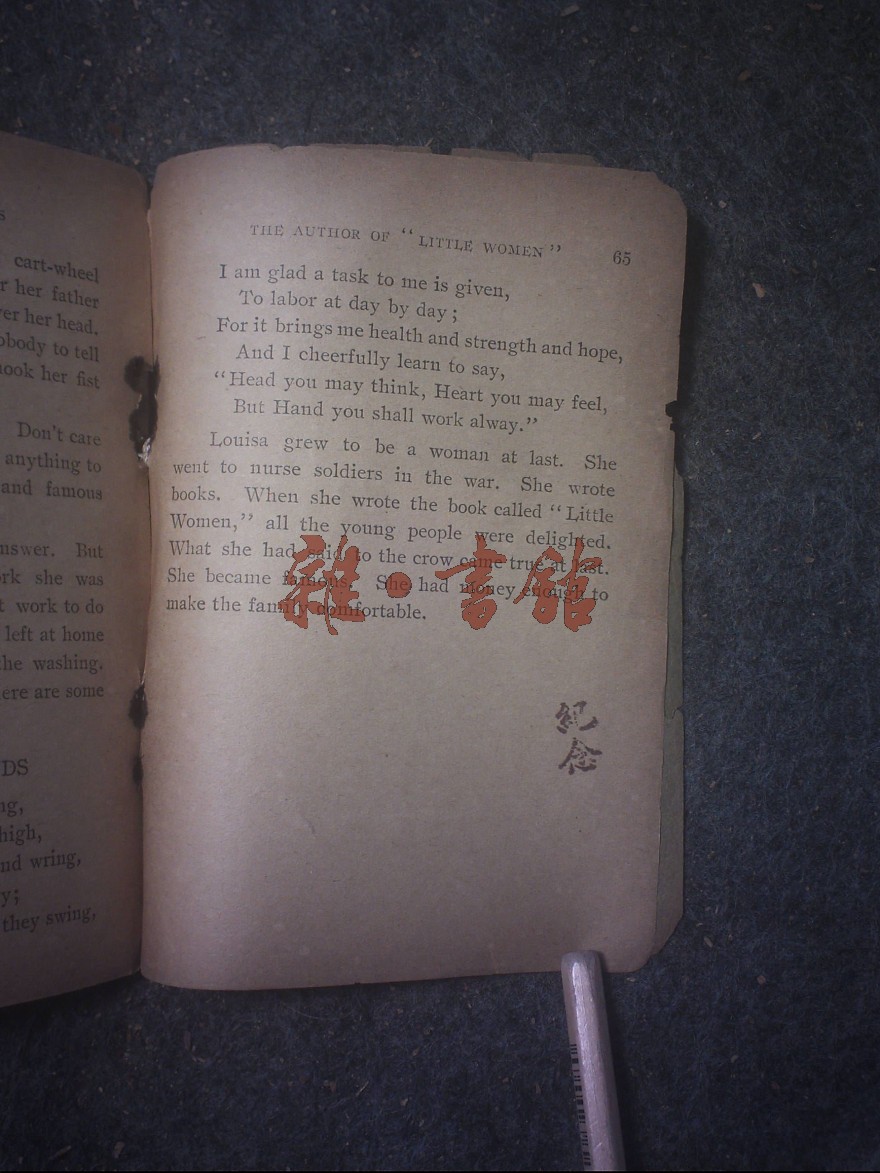 s
cart-wheel
r her father
er her head.
body to tell
ook her fist
Don't care
anything to
and famous
nswer. But
rk she was
t work to do
left at home
he washing.
ere are some
DS
ng,
high,
nd wring,
y;
they swing,
THE AUTHOR OF “LITTLE WOMEN” 65
I am glad a task to me is given,
To labor at day by day;
For it brings me health and strength and hope,
And I cheerfully learn to say,
“Head you may think, Heart you may feel,
But Hand you shall work alway.”
Louisa grew to be a woman at last. She
went to nurse soldiers in the war. She wrote
books. When she wrote the book called “Little
Women,” all the young people were delighted.
What she had said to the crow came true at last.
She became famous. She had money enough to
make the family comfortable.
雜·書館
紀
念